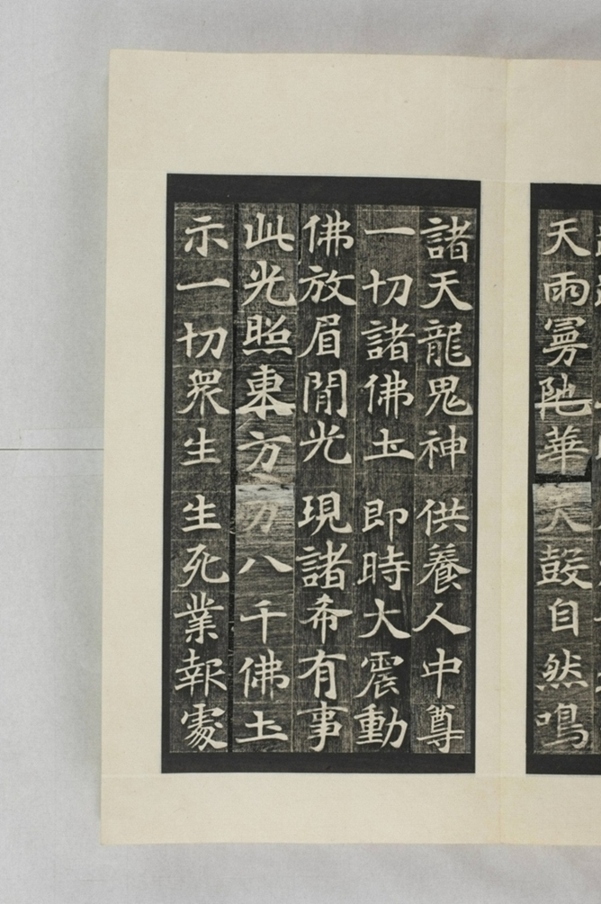 天雨曼陁華天鼓自然鳴
諸天龍鬼神供養人中尊
一切諸佛土即時大震動
佛放眉間光現諸希有事
此光照東方万八千佛土
示一切衆生生死業報處